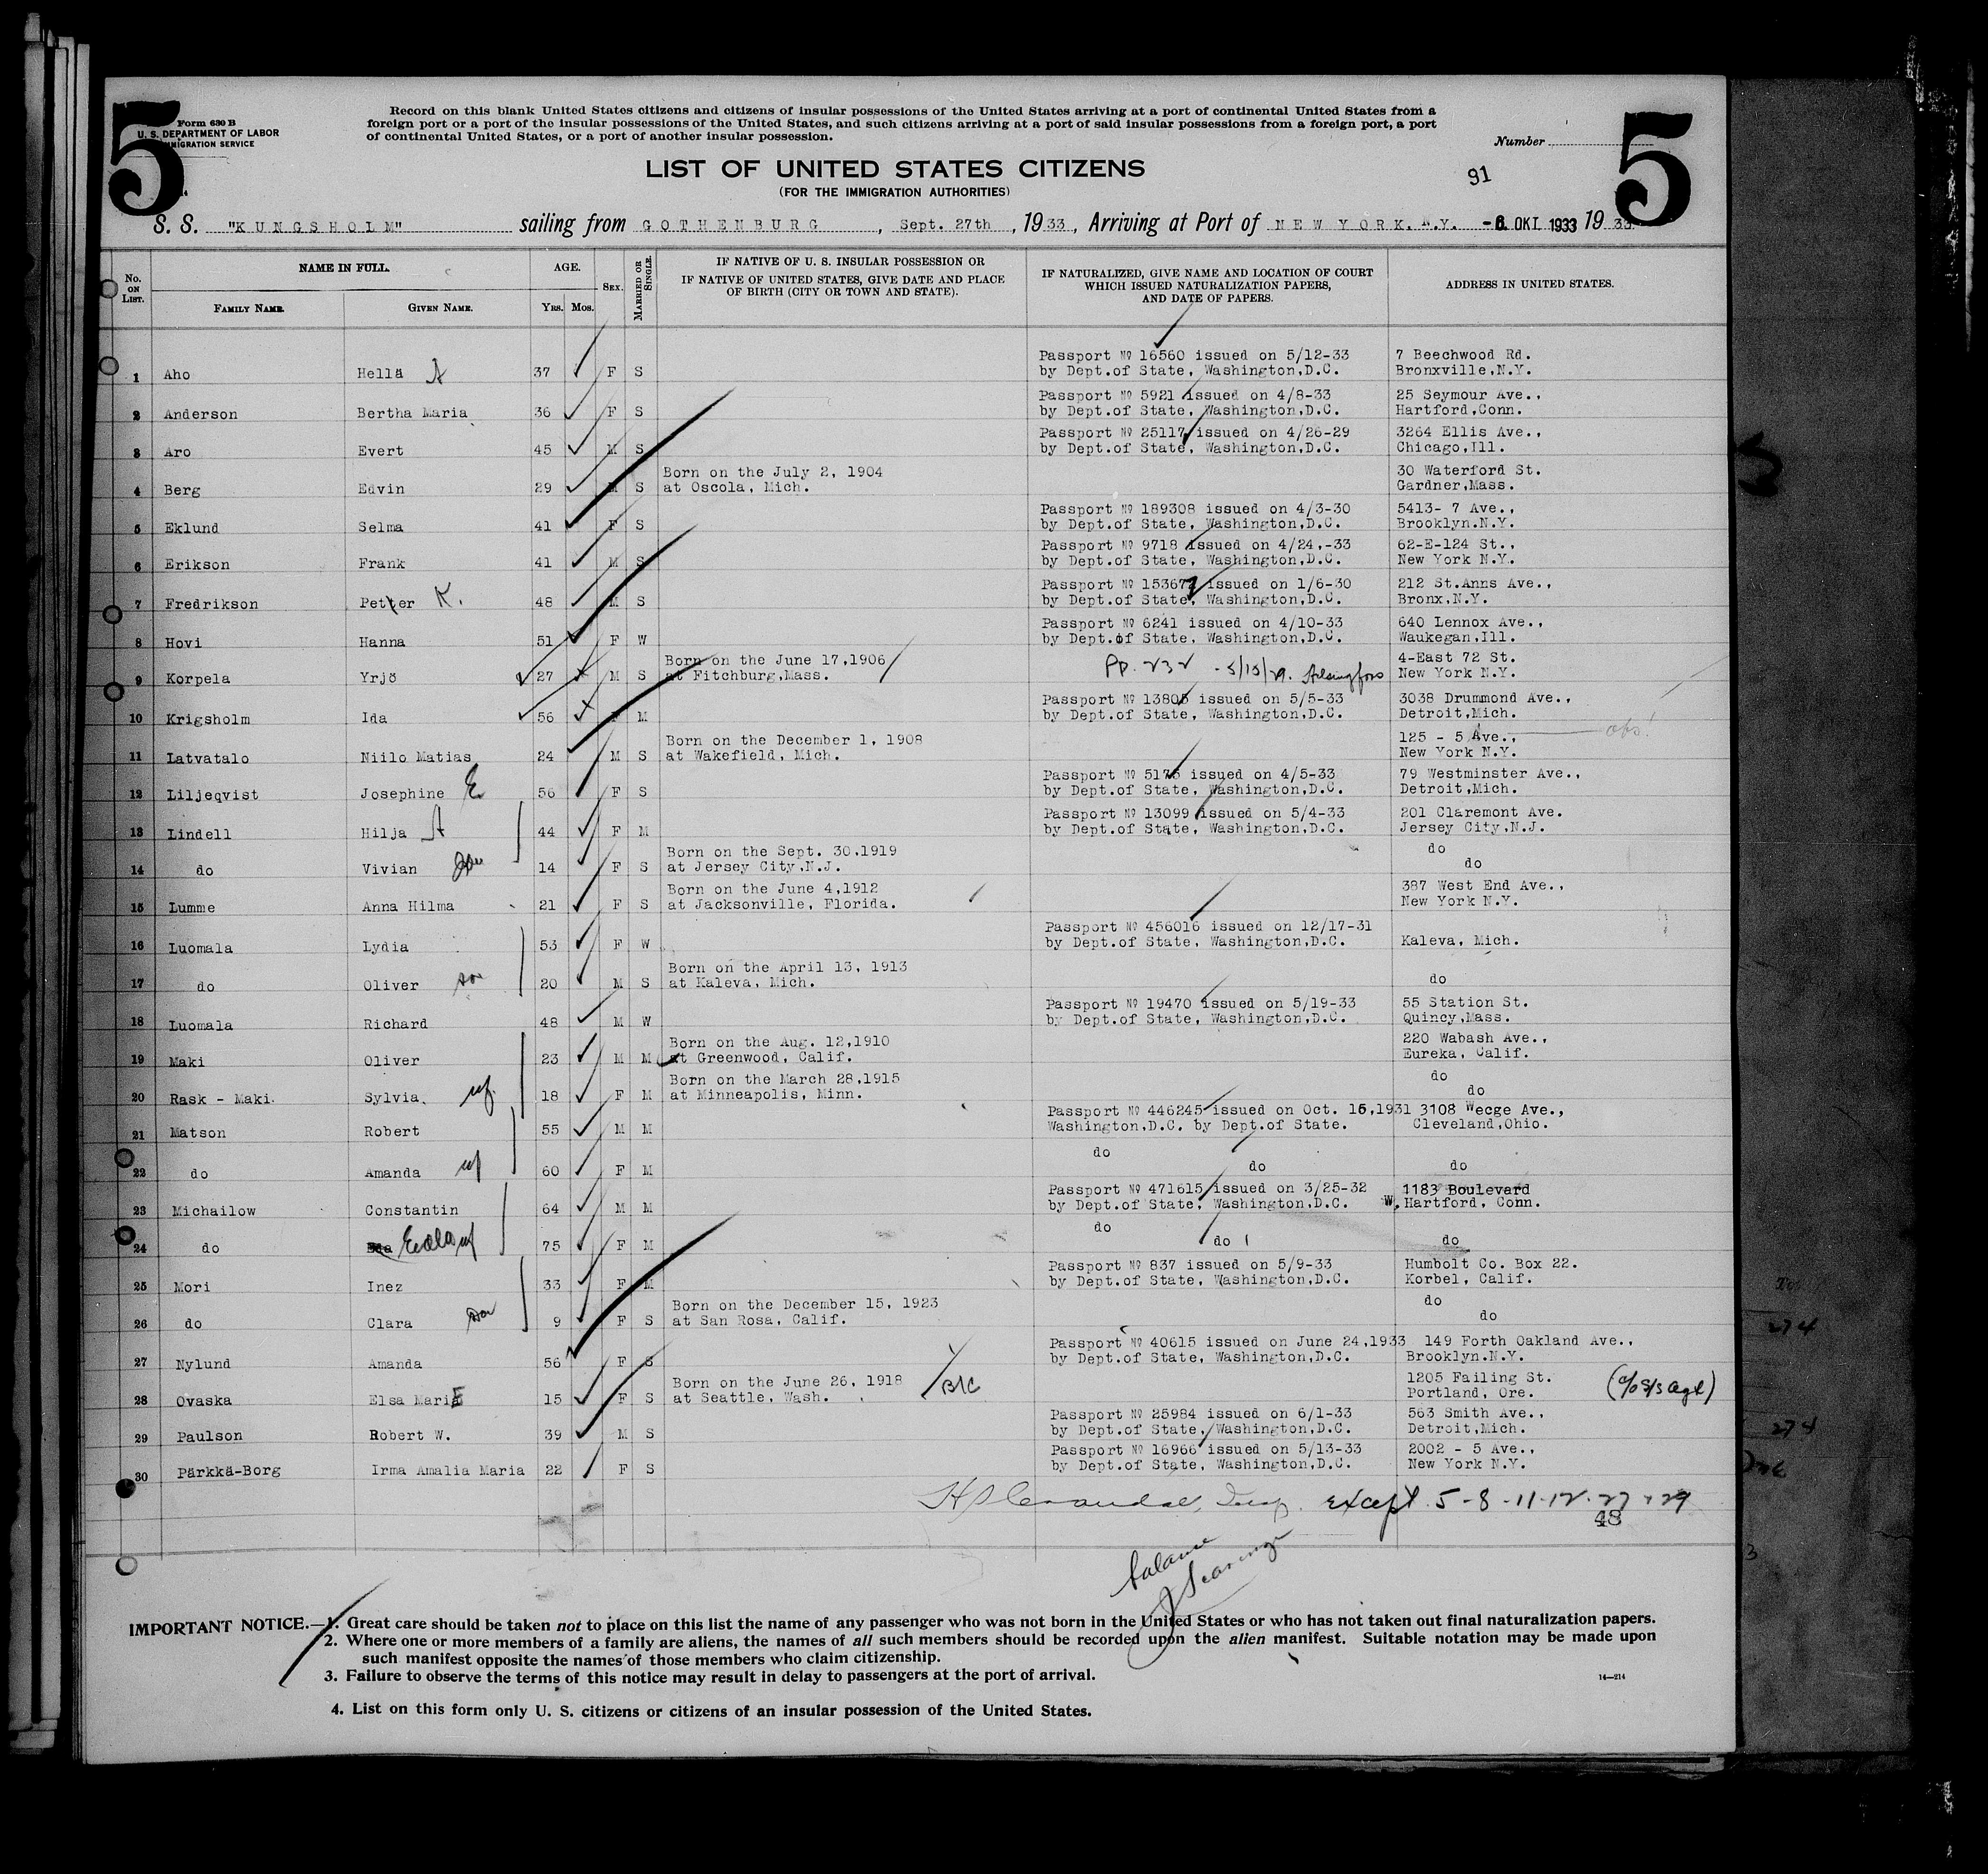 5
5
Form 630 B
U. S. DEPARTMENT OF LABOR
IMMIGRATION SERVICE
Record on this blank United States citizens and citizens of insular possessions of the United States arriving at a port of continental United States from a
foreign port or a port of the insular possessions of the United States, and such citizens arriving at a port of said insular possessions from a foreign port, a port
of continental United States, or a port of another insular possession.
Number
LIST OF UNITED STATES CITIZENS
91
(FOR THE IMMIGRATION AUTHORITIES)
S. S. "KUNGSHOLM" sailing from GOTHENBURG, Sept. 27th, 1933, Arriving at Port of NEW YORK. N.Y. -6. OKT 1933 1933
No. ON LIST.
NAME IN FULL.
FAMILY NAME.
GIVEN NAME.
AGE.
YRS. MOS.
SEX.
MARRIED OR SINGLE.
IF NATIVE OF U. S. INSULAR POSSESSION OR
IF NATIVE OF UNITED STATES, GIVE DATE AND PLACE
OF BIRTH (CITY OR TOWN AND STATE).
IF NATURALIZED, GIVE NAME AND LOCATION OF COURT
WHICH ISSUED NATURALIZATION PAPERS,
AND DATE OF PAPERS.
ADDRESS IN UNITED STATES.
Passport № 16560 issued on 5/12-33 7 Beechwood Rd.
1 Aho Hellä A 37 F S by Dept.of State, Washington,D.C. Bronxville,N.Y.
Passport № 5921 issued on 4/8-33 25 Seymour Ave.,
2 Anderson Bertha Maria 36 F S by Dept.of State, Washington,D.C. Hartford,Conn.
Passport № 25117 issued on 4/26-29 3264 Ellis Ave.,
3 Aro Evert 45 M S by Dept.of State, Washington,D.C. Chicago,Ill.
Born on the July 2, 1904 30 Waterford St.
4 Berg Edvin 29 M S at Oscola, Mich. Gardner,Mass.
Passport № 189308 issued on 4/3-30 5413- 7 Ave.,
5 Eklund Selma 41 F S by Dept.of State, Washington,D.C. Brooklyn.N.Y.
Passport № 9718 issued on 4/24,-33 62-E-124 St.,
6 Erikson Frank 41 M S by Dept.of State, Washington,D.C. New York N.Y.
Passport № 153672 issued on 1/6-30 212 St.Anns Ave.,
7 Fredrikson Petter K. 48 M S by Dept.of State, Washington,D.C. Bronx,N.Y.
Passport № 6241 issued on 4/10-33 640 Lennox Ave.,
8 Hovi Hanna 51 F W by Dept.of State, Washington,D.C. Waukegan,Ill.
Born on the June 17,1906 4-East 72 St.
9 Korpela Yrjö 27 M S at Fitchburg,Mass. Pp. 232 - 5/15/29. Helsingfors New York N.Y.
Passport № 13805 issued on 5/5-33 3038 Drummond Ave.,
10 Krigsholm Ida 56 F M by Dept.of State, Washington,D.C. Detroit,Mich.
Born on the December 1, 1908 125 - 5 Ave.,
11 Latvatalo Niilo Matias 24 M S at Wakefield, Mich. New York N.Y.
Passport № 5175 issued on 4/5-33 79 Westminster Ave.,
12 Liljeqvist Josephine E 56 F S by Dept.of State, Washington,D.C. Detroit,Mich.
Passport № 13099 issued on 5/4-33 201 Claremont Ave.
13 Lindell Hilja A 44 F M by Dept.of State, Washington,D.C. Jersey City,N.J.
Born on the Sept. 30,1919 do
14 do Vivian 14 F S at Jersey City,N.J. do
Born on the June 4,1912 387 West End Ave.,
15 Lumme Anna Hilma 21 F S at Jacksonville, Florida. New York N.Y.
Passport № 456016 issued on 12/17-31
16 Luomala Lydia 53 F W by Dept.of State, Washington,D.C. Kaleva, Mich.
Born on the April 13, 1913
17 do Oliver son 20 M S at Kaleva, Mich. do
Passport № 19470 issued on 5/19-33 55 Station St.
18 Luomala Richard 48 M W by Dept.of State, Washington,D.C. Quincy,Mass.
Born on the Aug. 12,1910 220 Wabash Ave.,
19 Maki Oliver 23 M M at Greenwood, Calif. Eureka, Calif.
Born on the March 28,1915 do
20 Rask - Maki. Sylvia. wf. 18 F M at Minneapolis, Minn. do
Passport № 446245 issued on Oct. 15,1931 3108 Wecge Ave.,
21 Matson Robert 55 M M Washington,D.C. by Dept.of State. Cleveland,Ohio.
do
22 do Amanda wf 60 F M do do
Passport № 471615 issued on 3/25-32 1183 Boulevard
23 Michailow Constantin 64 M M by Dept.of State, Washington,D.C. W. Hartford, Conn.
do
24 do Eda wf 75 F M do do
Passport № 837 issued on 5/9-33 Humbolt Co. Box 22.
25 Mori Inez 33 F M by Dept.of State, Washington,D.C. Korbel, Calif.
Born on the December 15, 1923 do
26 do Clara 9 F S at San Rosa, Calif. do
Passport № 40615 issued on June 24,1933 149 Forth Oakland Ave.,
27 Nylund Amanda 56 F S by Dept.of State, Washington,D.C. Brooklyn.N.Y.
Born on the June 26, 1918 1205 Failing St.
28 Ovaska Elsa MariE 15 F S at Seattle, Wash. B/C Portland, Ore. (c/o S/S Agt)
Passport № 25984 issued on 6/1-33 563 Smith Ave.,
29 Paulson Robert W. 39 M S by Dept.of State, Washington,D.C. Detroit,Mich.
Passport № 16966 issued on 5/13-33 2002 - 5 Ave.,
30 Pärkkä-Borg Irma Amalia Maria 22 F S by Dept.of State, Washington,D.C. New York N.Y.
Insp. except 5-8-11-12-27+29
48
balance
IMPORTANT NOTICE.—1. Great care should be taken not to place on this list the name of any passenger who was not born in the United States or who has not taken out final naturalization papers.
2. Where one or more members of a family are aliens, the names of all such members should be recorded upon the alien manifest. Suitable notation may be made upon
such manifest opposite the names of those members who claim citizenship.
3. Failure to observe the terms of this notice may result in delay to passengers at the port of arrival.
14—214
4. List on this form only U. S. citizens or citizens of an insular possession of the United States.